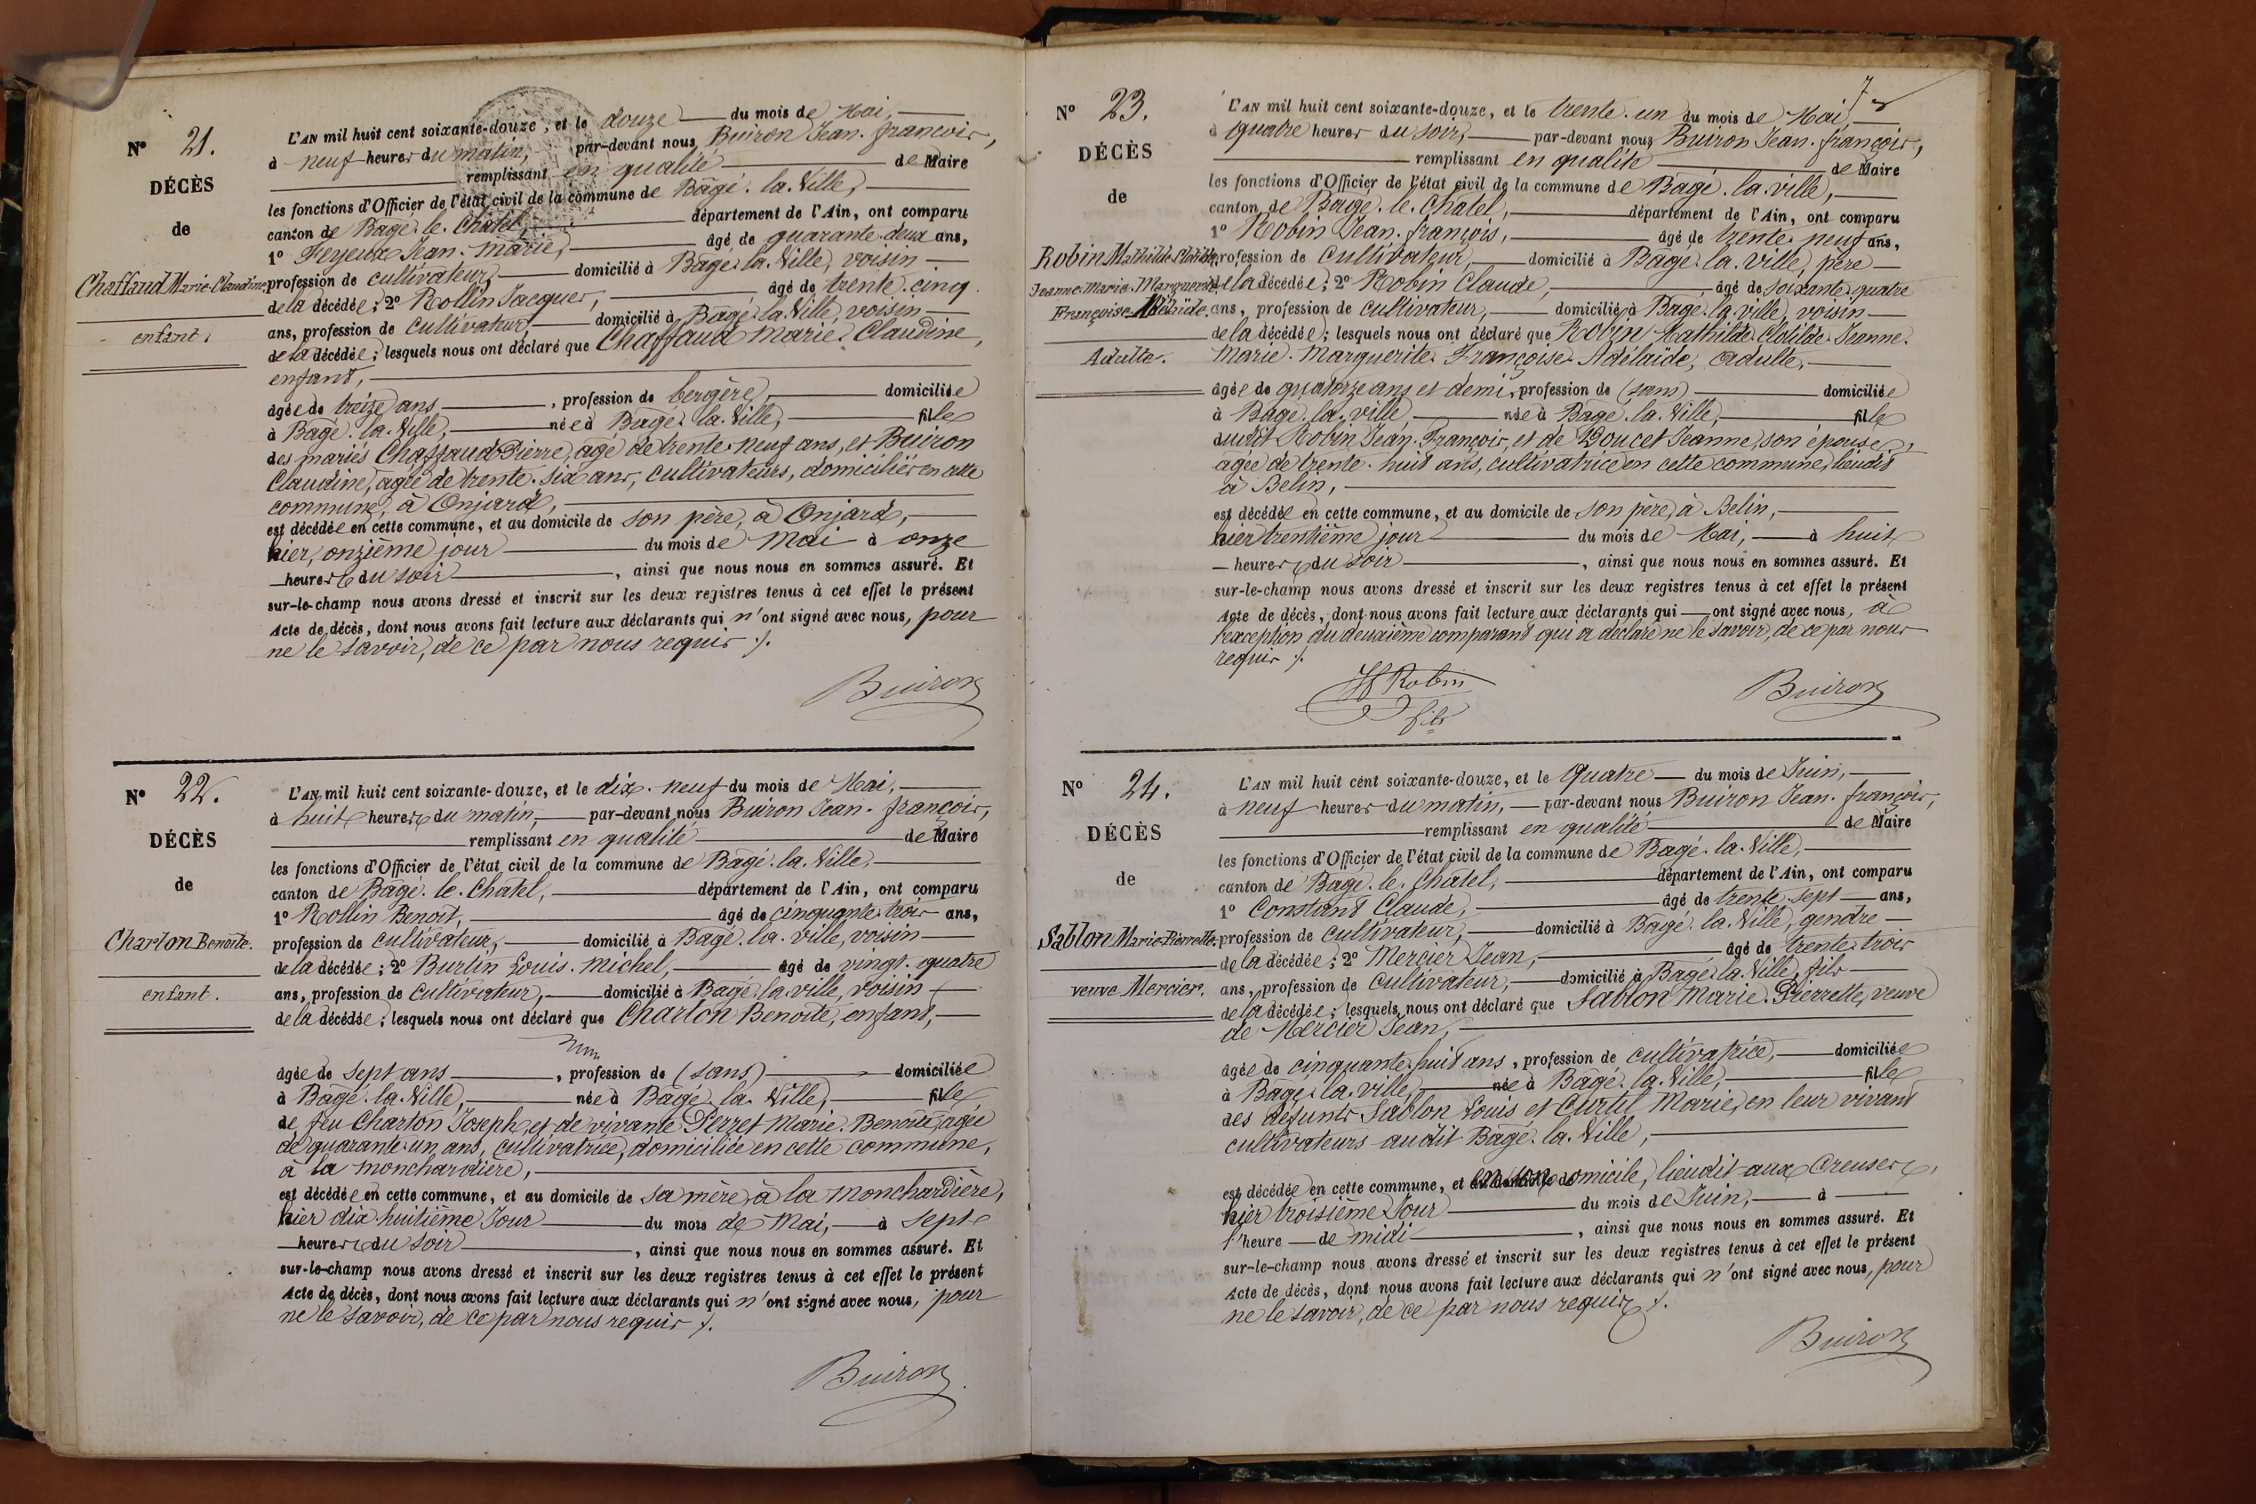 N° 21.
DÉCÈS
de
Chaffaud Marie-Claudine
enfant.
L'AN mil huit cent soixante-douze, et le douze du mois de Mai,
à neuf heures du matin, par-devant nous Buiron Jean-françois,
remplissant en qualité de Maire
les fonctions d'Officier de l'état civil de la commune de Bâgé-la-Ville,
canton de Bâgé-le-Châtel, département de l'Ain, ont comparu
1° Feyeux Jean-Marie, âgé de quarante-deux ans,
profession de cultivateur, domicilié à Bâgé-la-Ville, voisin
de la décédée; 2° Rollin Jacques, âgé de trente-cinq
ans, profession de cultivateur, domicilié à Bâgé-la-Ville, voisin
de la décédée; lesquels nous ont déclaré que Chaffaud Marie-Claudine,
enfant,
âgée de treize ans, profession de bergère, domiciliée
à Bâgé-la-Ville, née à Bâgé-la-Ville, fille
des mariés Chaffaud Pierre, agé de trente-neuf ans, et Buiron
Claudine, agée de trente-six ans, cultivateurs, domiciliés en cette
commune, à Onjard,
est décédée en cette commune, et au domicile de son père, à Onjard,
hier, onzième jour du mois de Mai à onze
heures du soir, ainsi que nous nous en sommes assuré. Et
sur-le-champ nous avons dressé et inscrit sur les deux registres tenus à cet effet le présent
Acte de décès, dont nous avons fait lecture aux déclarants qui n'ont signé avec nous, pour
ne le savoir, de ce par nous requis ./.
Buiron
N° 22.
DÉCÈS
de
Charton Benoîte.
enfant.
L'AN mil huit cent soixante-douze, et le dix-neuf du mois de Mai,
à huit heures du matin, par-devant nous Buiron Jean-françois,
remplissant en qualité de Maire
les fonctions d'Officier de l'état civil de la commune de Bâgé-la-Ville,
canton de Bâgé-le-Châtel, département de l'Ain, ont comparu
1° Rollin Benoît, âgé de cinquante-trois ans,
profession de cultivateur, domicilié à Bâgé-la-ville, voisin
de la décédée; 2° Burtin Louis-Michel, âgé de vingt-quatre
ans, profession de cultivateur, domicilié à Bâgé-la-ville, voisin
de la décédée; lesquels nous ont déclaré que Charton Benoîte, enfant,
âgée de sept ans, profession de (sans) domiciliée
à Bâgé-la-Ville, née à Bâgé-la-Ville, fille
de feu Charton Joseph, et de vivante Perret Marie-Benoîte, agée
de quarante-un ans, cultivatrice, domiciliée en cette commune,
à la monchardière,
est décédée en cette commune, et au domicile de sa mère, à la monchardière,
hier dix-huitième Jour du mois de Mai, à sept
heures du soir, ainsi que nous nous en sommes assuré. Et
sur-le-champ nous avons dressé et inscrit sur les deux registres tenus à cet effet le présent
Acte de décès, dont nous avons fait lecture aux déclarants qui n'ont signé avec nous, pour
ne le savoir, de ce par nous requis ./.
Buiron
7
N° 23.
DÉCÈS
de
Robin Mathilde-Clotilde
Jeanne-Marie-Marguerite
Françoise-Adélaïde.
Adulte.
L'AN mil huit cent soixante-douze, et le trente-un du mois de Mai,
à quatre heures du soir, par-devant nous Buiron Jean-françois,
remplissant en qualité de Maire
les fonctions d'Officier de l'état civil de la commune de Bâgé-la-ville,
canton de Bâgé-le-Châtel, département de l'Ain, ont comparu
1° Robin Jean-françois, âgé de trente-neuf ans,
profession de cultivateur, domicilié à Bâgé-la-ville, père
de la décédée; 2° Robin Claude, âgé de soixante-quatre
ans, profession de cultivateur, domicilié à Bâgé-la-ville, voisin
de la décédée; lesquels nous ont déclaré que Robin Mathilde-Clotilde-Jeanne-
Marie-Marguerite-Françoise-Adélaïde, adulte,
âgée de quatorze ans et demi, profession de (sans) domiciliée
à Bâgé-la-ville, née à Bâgé-la-Ville, fille
dudit Robin Jean-François, et de Doucet Jeanne, son épouse,
agée de trente-huit ans, cultivatrice en cette commune, lieudit
à Belin,
est décédée en cette commune, et au domicile de son père, à Belin,
hier trentième jour du mois de Mai, à huit
heures du soir, ainsi que nous nous en sommes assuré. Et
sur-le-champ nous avons dressé et inscrit sur les deux registres tenus à cet effet le présent
Acte de décès, dont nous avons fait lecture aux déclarants qui ont signé avec nous, à
l'exception du deuxième comparant qui a déclaré ne le savoir, de ce par nous
requis ./.
Robin
fils
Buiron
N° 24.
DÉCÈS
de
Sablon Marie-Pierrette.
veuve Mercier.
L'AN mil huit cent soixante-douze, et le Quatre du mois de Juin,
à neuf heures du matin, par-devant nous Buiron Jean-françois,
remplissant en qualité de Maire
les fonctions d'Officier de l'état civil de la commune de Bâgé-la-Ville,
canton de Bâgé-le-Châtel, département de l'Ain, ont comparu
1° Constant Claude, âgé de trente-sept ans,
profession de cultivateur, domicilié à Bâgé-la-Ville, gendre
de la décédée; 2° Mercier Jean, âgé de trente-trois
ans, profession de cultivateur, domicilié à Bâgé-la-Ville, fils
de la décédée; lesquels nous ont déclaré que Sablon Marie-Pierrette, veuve
de Mercier Jean,
âgée de cinquante-huit ans, profession de cultivatrice, domiciliée
à Bâgé-la-ville, née à Bâgé-la-Ville, fille
des défunts Sablon Louis et Curtil Marie, en leur vivant
cultivateurs audit Bâgé-la-Ville,
est décédée en cette commune, et en son domicile, lieudit aux Creuses,
hier troisième Jour du mois de Juin, à
l'heure de midi, ainsi que nous nous en sommes assuré. Et
sur-le-champ nous avons dressé et inscrit sur les deux registres tenus à cet effet le présent
Acte de décès, dont nous avons fait lecture aux déclarants qui n'ont signé avec nous, pour
ne le savoir, de ce par nous requis ./.
Buiron